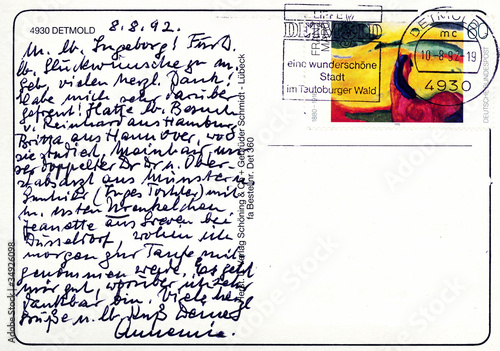 4930 DETMOLD
8.8.92.
M. lb. Ingeborg! Für D.
lb. Glückwünsche zu m.
Geb. vielen herzl. Dank!
Habe mich sehr darüber
gefreut! Hatte lb. Besuch
v. Reinhard aus Hamburg
Britta aus Hannover, wo
sie
der doppelte Dr. Dr. u. Ober-
stabsarzt aus Münster u.
(Inges Tochter) mit
m. ersten Urenkelchen
Jeanette aus Greven bei
Düsseldorf, wohin ich
morgen zur Taufe mit-
genommen werde. Es geht
mir gut, worüber ich sehr
dankbar bin. Viele herzl.
Grüße u. lb. Kuß Deine
Annemie.
Verlag Schöning & Co + Gebrüder Schmidt - Lübeck
Bestellnr. Det 360
DETMOLD
eine wunderschöne
Stadt
im Teutoburger Wald
DETMOLD
mc
10.-8.92-19
4930
60
DEUTSCHE BUNDESPOST
Adobe Stock | #34926098
Adobe Stock